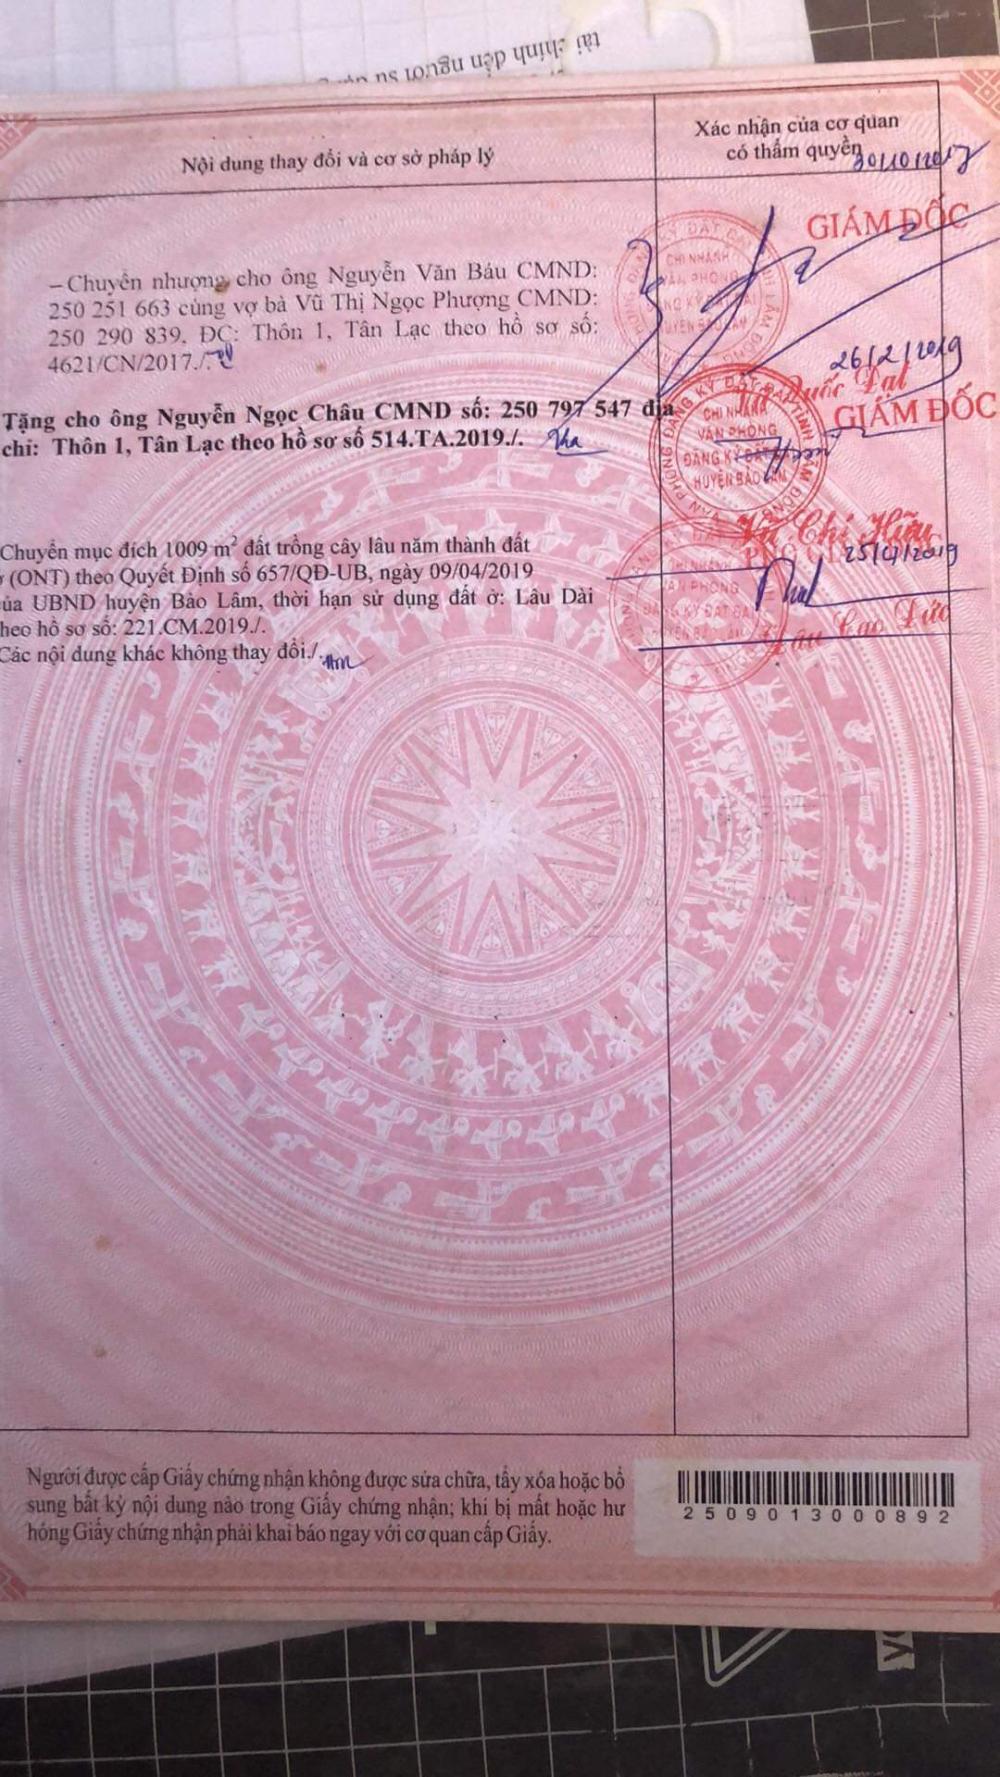 tài chính đến người sử
Nội dung thay đổi và cơ sở pháp lý
Xác nhận của cơ quan
có thẩm quyền
30/10/2017
GIÁM ĐỐC
– Chuyển nhượng cho ông Nguyễn Văn Báu CMND:
250 251 663 cùng vợ bà Vũ Thị Ngọc Phượng CMND:
250 290 839, ĐC: Thôn 1, Tân Lạc theo hồ sơ số:
4621/CN/2017./.
CHI NHÁNH
VĂN PHÒNG
ĐĂNG KÝ ĐẤT ĐAI
HUYỆN BẢO LÂM
Quốc Đạt
26/2/2019
GIÁM ĐỐC
Tặng cho ông Nguyễn Ngọc Châu CMND số: 250 797 547 địa
chỉ: Thôn 1, Tân Lạc theo hồ sơ số 514.TA.2019./.
CHI NHÁNH
VĂN PHÒNG
ĐĂNG KÝ ĐẤT ĐAI
HUYỆN BẢO LÂM
Vũ Chí Hữu
25/4/2019
Chuyển mục đích 1009 m² đất trồng cây lâu năm thành đất
(ONT) theo Quyết Định số 657/QĐ-UB, ngày 09/04/2019
ủa UBND huyện Bảo Lâm, thời hạn sử dụng đất ở: Lâu Dài
heo hồ sơ số: 221.CM.2019./.
Các nội dung khác không thay đổi./.
CHI NHÁNH
VĂN PHÒNG
ĐĂNG KÝ ĐẤT ĐAI
HUYỆN BẢO LÂM
Cao Đức
Người được cấp Giấy chứng nhận không được sửa chữa, tẩy xóa hoặc bổ
sung bất kỳ nội dung nào trong Giấy chứng nhận; khi bị mất hoặc hư
hỏng Giấy chứng nhận phải khai báo ngay với cơ quan cấp Giấy.
250901300​0892